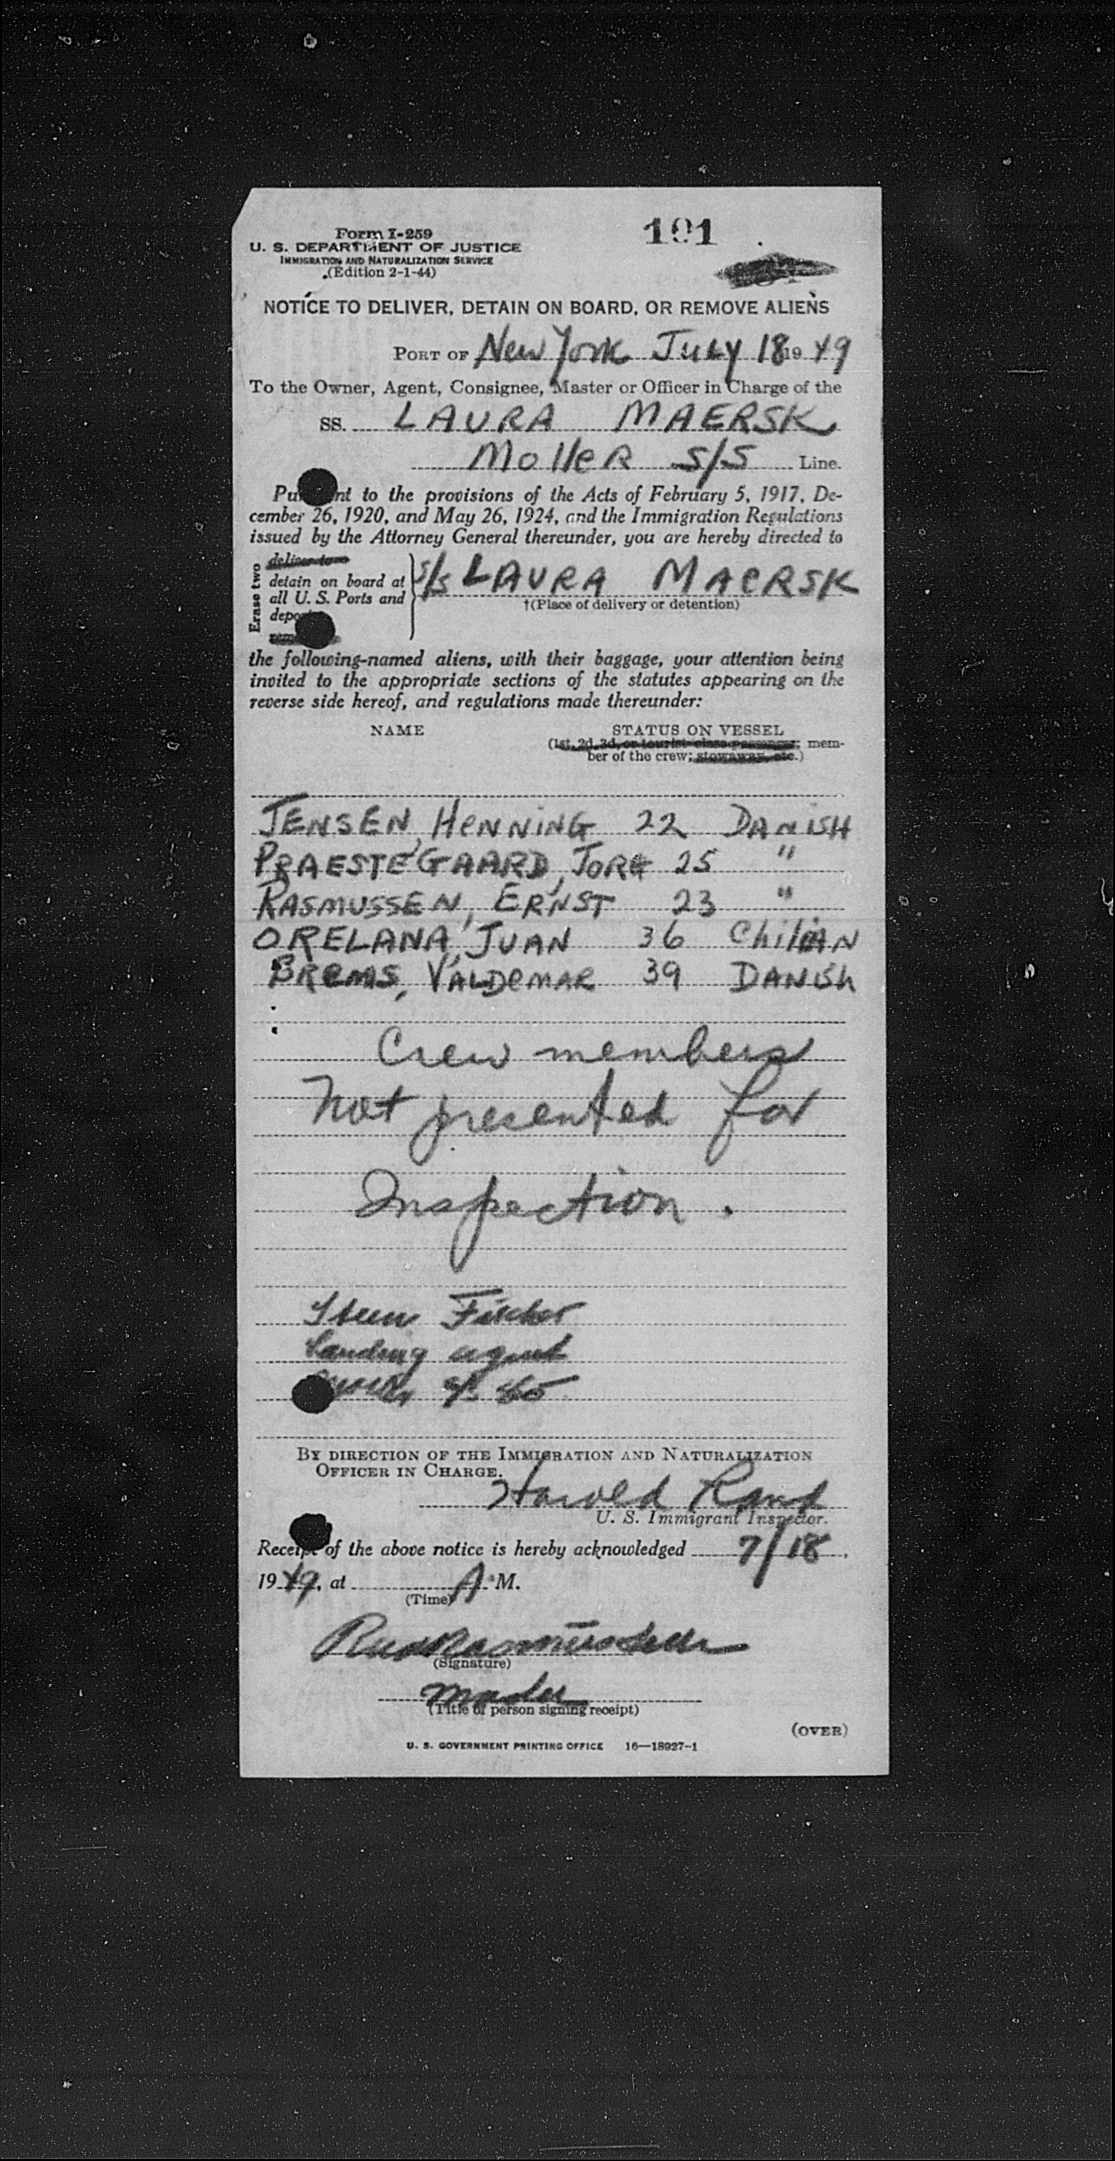 Form I-259
U. S. DEPARTMENT OF JUSTICE
IMMIGRATION AND NATURALIZATION SERVICE
(Edition 2-1-44)
191
NOTICE TO DELIVER, DETAIN ON BOARD, OR REMOVE ALIENS
PORT OF New York July 18 19 49
To the Owner, Agent, Consignee, Master or Officer in Charge of the
SS. LAURA MAERSK
Moller S/S Line.
Pu nt to the provisions of the Acts of February 5, 1917, De-
cember 26, 1920, and May 26, 1924, and the Immigration Regulations
issued by the Attorney General thereunder, you are hereby directed to
Erase two
deliver to
detain on board at
all U. S. Ports and
depo
rem
S/S LAURA MAERSK
†(Place of delivery or detention)
the following-named aliens, with their baggage, your attention being
invited to the appropriate sections of the statutes appearing on the
reverse side hereof, and regulations made thereunder:
NAME STATUS ON VESSEL
(1st, 2d, 3d, or tourist class passenger; mem-
ber of the crew; stowaway, etc.)
JENSEN, HENNING 22 DANISH
PRAESTEGAARD, JORG 25 "
RASMUSSEN, ERNST 23 "
ORELANA, JUAN 36 ChiliAN
BREMS, VALDEMAR 39 DANISh
Crew members
not presented for
Inspection.
Steen
Landing agent
BY DIRECTION OF THE IMMIGRATION AND NATURALIZATION
OFFICER IN CHARGE.
Harold Rand
U. S. Immigrant Inspector.
Receipt of the above notice is hereby acknowledged 7/18,
1949, at A M.
(Time)
Rasmussen
(Signature)
Master
(Title of person signing receipt)
(OVER)
U. S. GOVERNMENT PRINTING OFFICE 16—18927-1